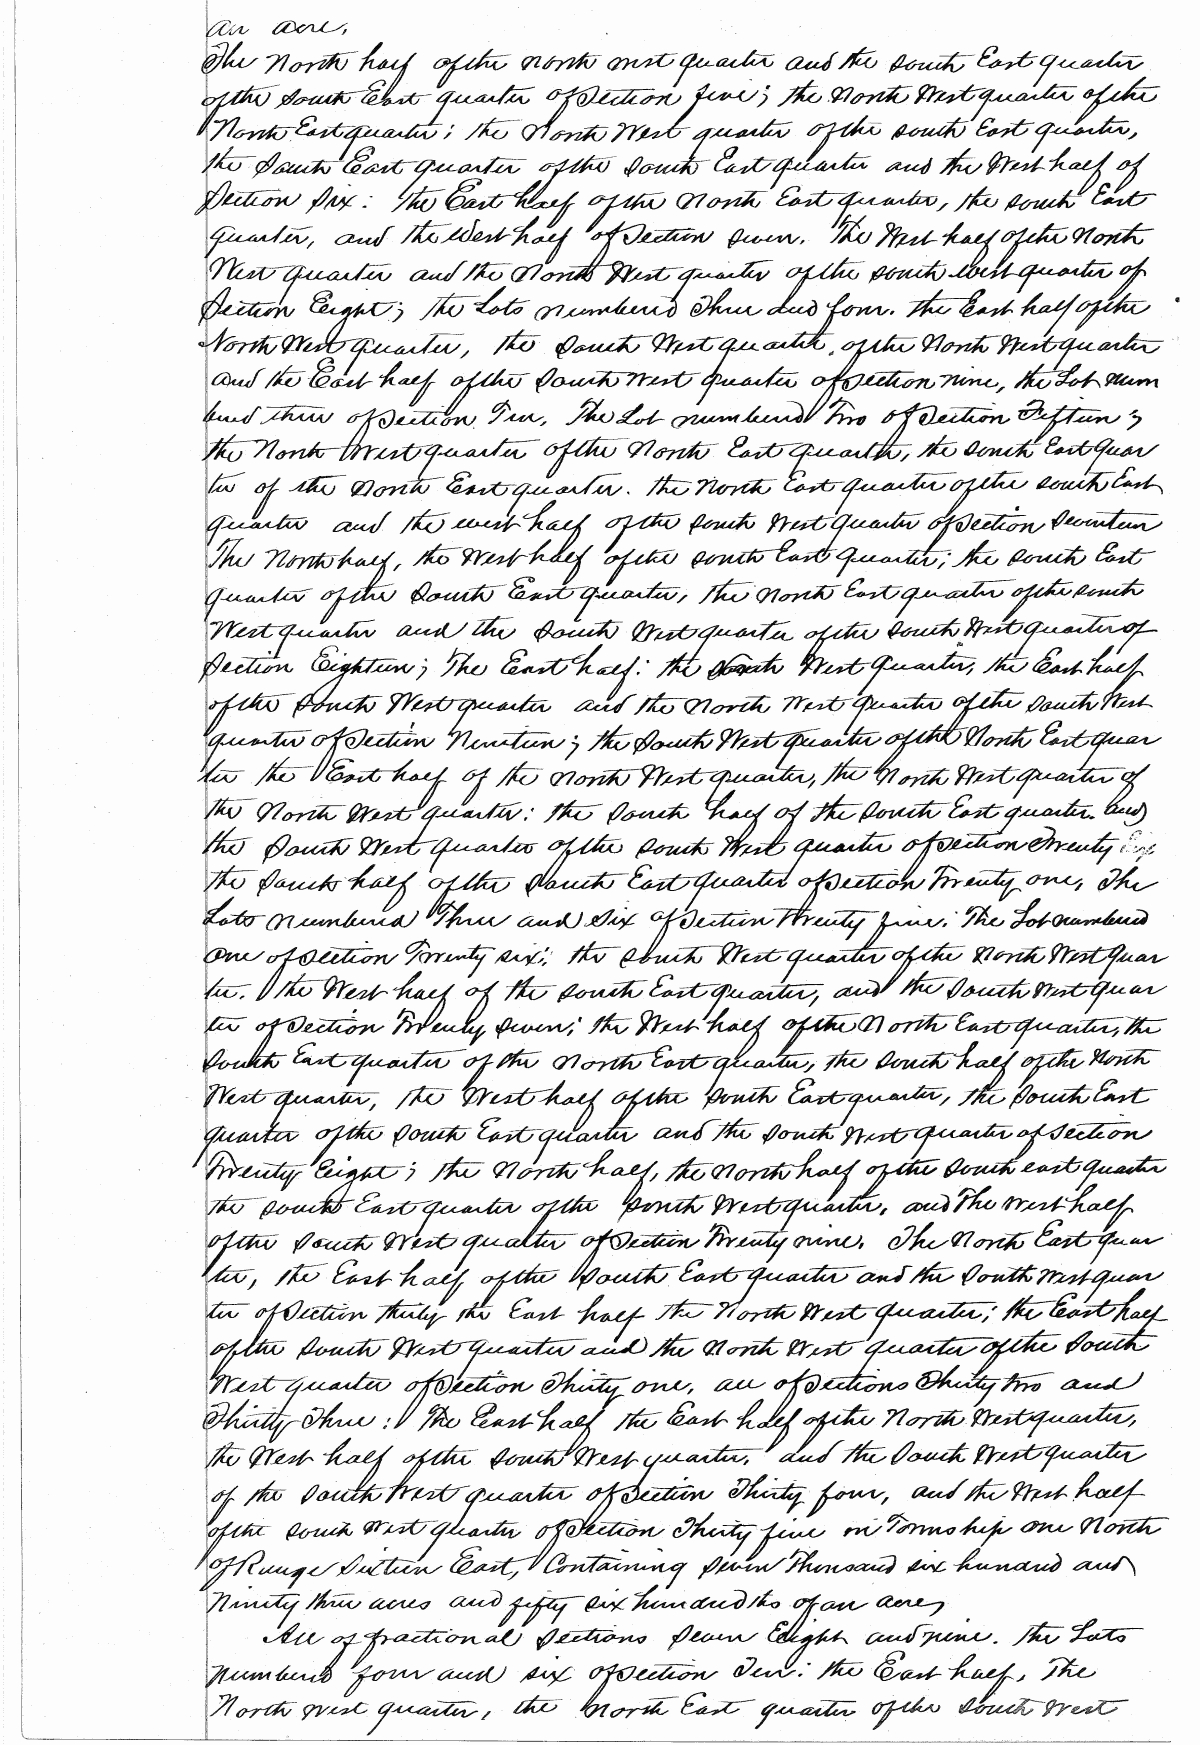 an acre.
The North half of the north west quarter and the south East quarter
of the South East quarter of Section five; the North West quarter of the
North East quarter; the North West quarter of the south East quarter,
the South East quarter of the South East quarter and the West half of
Section Six: the East half of the North East quarter, the south East
quarter, and the West half of Section Seven. The West half of the North
West quarter and the North West quarter of the south west quarter of
Section Eight; the Lots numbered Three and four. the East half of the
North West quarter, the South West quarter, of the North West quarter
and the East half of the South West quarter of Section nine, the Lot num
bered three of Section Ten, The Lot numbered Two of Section Fifteen;
the North West quarter of the North East quarter, the south East quar
ter of the North East quarter. the North East quarter of the south East
quarter and the west half of the South West quarter of Section Seventeen
The North half, the West half of the south East quarter; the south East
quarter of the South East quarter, the North East quarter of the south
West quarter and the South West quarter of the South West quarter of
Section Eighteen; The East half: the North West quarter, the East half
of the South West quarter and the North West quarter of the South West
quarter of Section Nineteen; the South West quarter of the North East quar
ter the East half of the North West quarter, the North West quarter of
the North West quarter: the South half of the South East quarter. and
the South West quarter of the South West quarter of Section Twenty
the South half of the South East quarter of Section Twenty one, The
Lots numbered Three and Six of Section Twenty five: The Lot numbered
one of Section Twenty six: the South West quarter of the North West quar
ter. the West half of the South East quarter, and the South West quar
ter of Section Twenty Seven; the West half of the North East quarter, the
South East quarter of the North East quarter, the South half of the North
West quarter, the West half of the South East quarter, the South East
quarter of the South East quarter and the South West quarter of Section
Twenty Eight; the North half, the North half of the South east quarter
the South East quarter of the South West quarter, and The West half
of the South West quarter of Section Twenty nine. The North East quar
ter, the East half of the South East quarter and the South West quar
ter of Section thirty the East half the North West quarter; the East half
of the South West quarter and the North West quarter of the South
West quarter of Section Thirty one, all of Sections Thirty two and
Thirty Three: The East half the East half of the North West quarter,
the West half of the South West quarter, and the South West quarter
of the South West quarter of Section Thirty four, and the West half
of the South West quarter of Section Thirty five in Township one North
of Range Sixteen East, Containing Seven Thousand six hundred and
Ninety three acres and fifty six hundredths of an acre,
All of fractional Sections Seven Eight and nine. the Lots
numbered four and six of Section Ten: the East half, The
North west quarter, the North East quarter of the South West